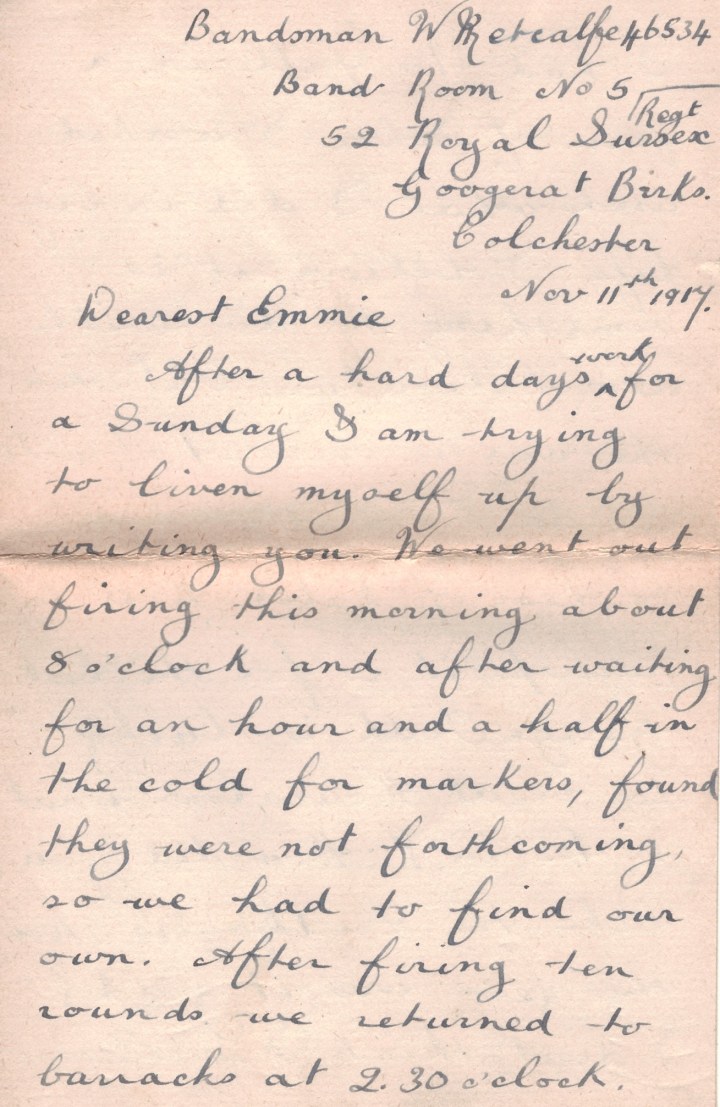 Bandsman W Metcalfe 46534
Band Room No 5
52 Royal Sussex Regt
Googerat Birks.
Colchester
Nov 11th 1917.
Dearest Emmie
After a hard days work for
a Sunday I am trying
to liven myself up by
writing you. We went out
firing this morning about
8 o'clock and after waiting
for an hour and a half in
the cold for markers, found
they were not forthcoming,
so we had to find our
own. After firing ten
rounds we returned to
barracks at 2.30 o'clock.